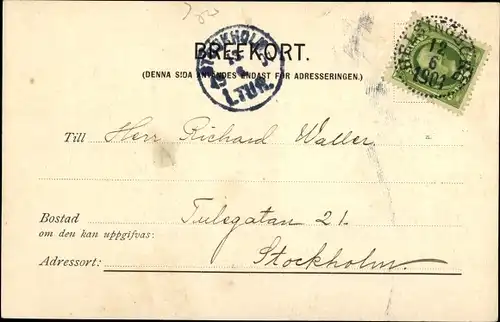 BREFKORT.
(DENNA SIDA ANVÄNDES ENDAST FÖR ADRESSERINGEN.)
STOCKHOLM
1.TUR.
HELSINGBORG
12
6
1901
Till Herr Richard Waller.
Bostad Tulegatan 21.
om den kan uppgifvas:
Stockholm.
Adressort: